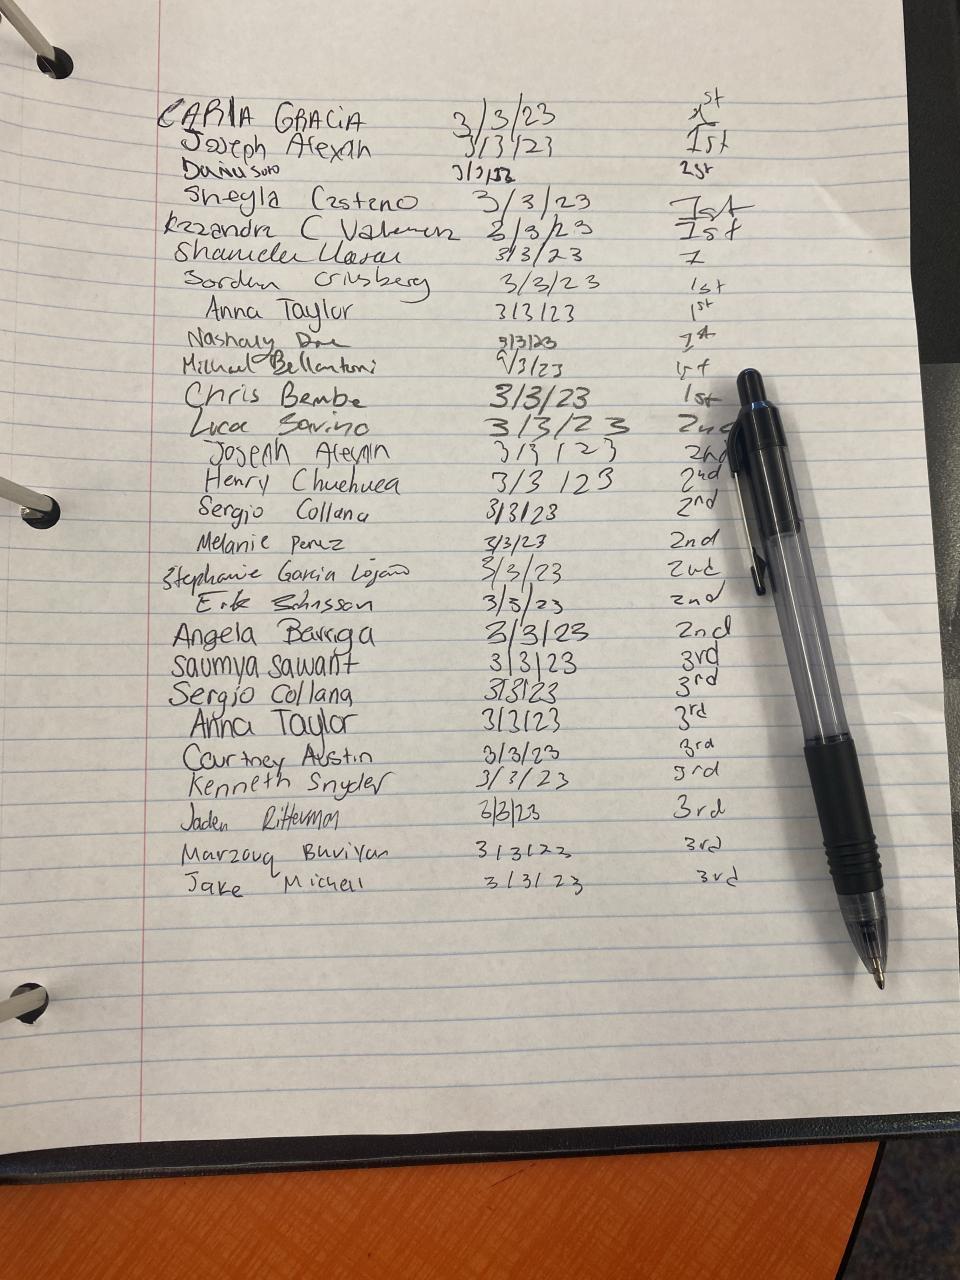 CARLA GRACIA 3/3/23 1st
Joseph Alexan 3/3/23 1st
Dania Soto 3/3/23 1st
Sheyla Casteno 3/3/23 1st
Kazandra C 3/3/23 1st
3/3/23 1
Jordan 3/3/23 1st
Anna Taylor 3/3/23 1st
Nashaly 3/3/23 1st
Michael Bellantoni 3/3/23 1st
Chris Bembe 3/3/23 1st
Luca Savino 3/3/23 2nd
Joseph 3/3/23 2nd
Henry Chuehuea 3/3/23 2nd
Sergio Collana 3/3/23 2nd
Melanie Perez 3/3/23 2nd
Stephanie Garcia Lojano 3/3/23 2nd
Erik 3/3/23 2nd
Angela Barriga 3/3/23 2nd
Saumya Sawant 3/3/23 3rd
Sergio Collana 3/3/23 3rd
Anna Taylor 3/3/23 3rd
Courtney Austin 3/3/23 3rd
Kenneth Snyder 3/3/23 3rd
Jaden Ritterman 3/3/23 3rd
Marzouq 3/3/23 3rd
Jake Michell 3/3/23 3rd